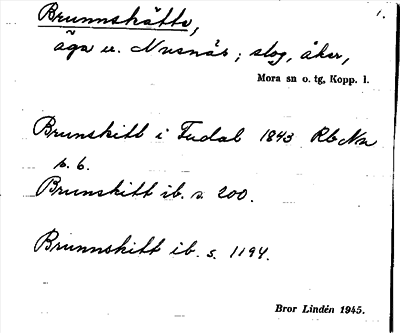 Brunnskätte, 1.
äga u. Nusnäs; slog, åker,
Mora sn o. tg, Kopp. l.
Brunskitt i Fudal 1843 Rb Na
s. 6.
Brunskitt ib. s. 200.
Brunnskitt ib. s. 1194.
Bror Lindén 1945.